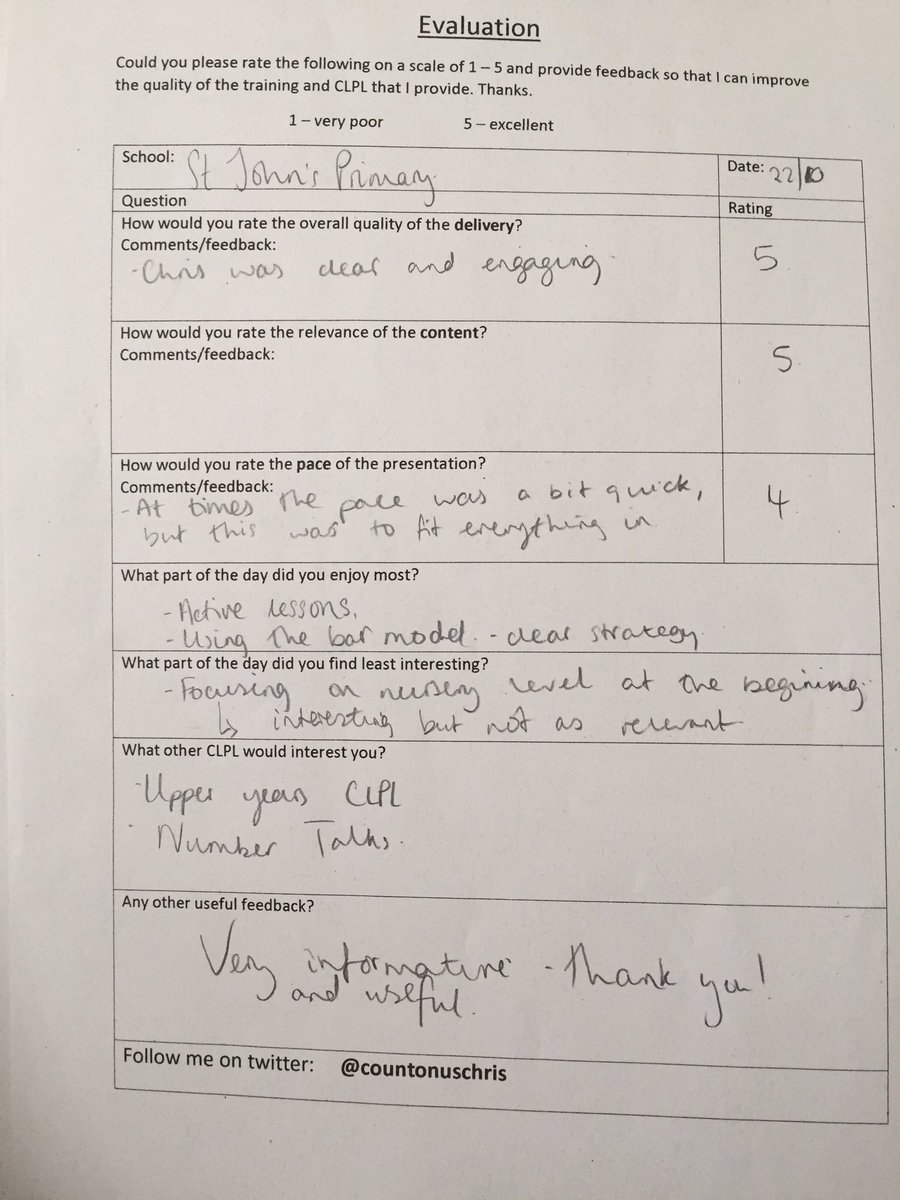 Evaluation
Could you please rate the following on a scale of 1 – 5 and provide feedback so that I can improve
the quality of the training and CLPL that I provide. Thanks.
1 – very poor 5 – excellent
School: St John's Primary Date: 22/10
Question Rating
How would you rate the overall quality of the delivery?
Comments/feedback:
- Chris was clear and engaging 5
How would you rate the relevance of the content?
Comments/feedback: 5
How would you rate the pace of the presentation?
Comments/feedback:
- At times the pace was a bit quick, 4
but this was to fit everything in
What part of the day did you enjoy most?
- Active lessons.
- Using the bar model. - clear strategy.
What part of the day did you find least interesting?
- Focusing on nursery level at the begining.
↳ interesting but not as relevant
What other CLPL would interest you?
- Upper years CLPL
- Number Talks.
Any other useful feedback?
Very informative - Thank you!
and useful.
Follow me on twitter: @countonuschris